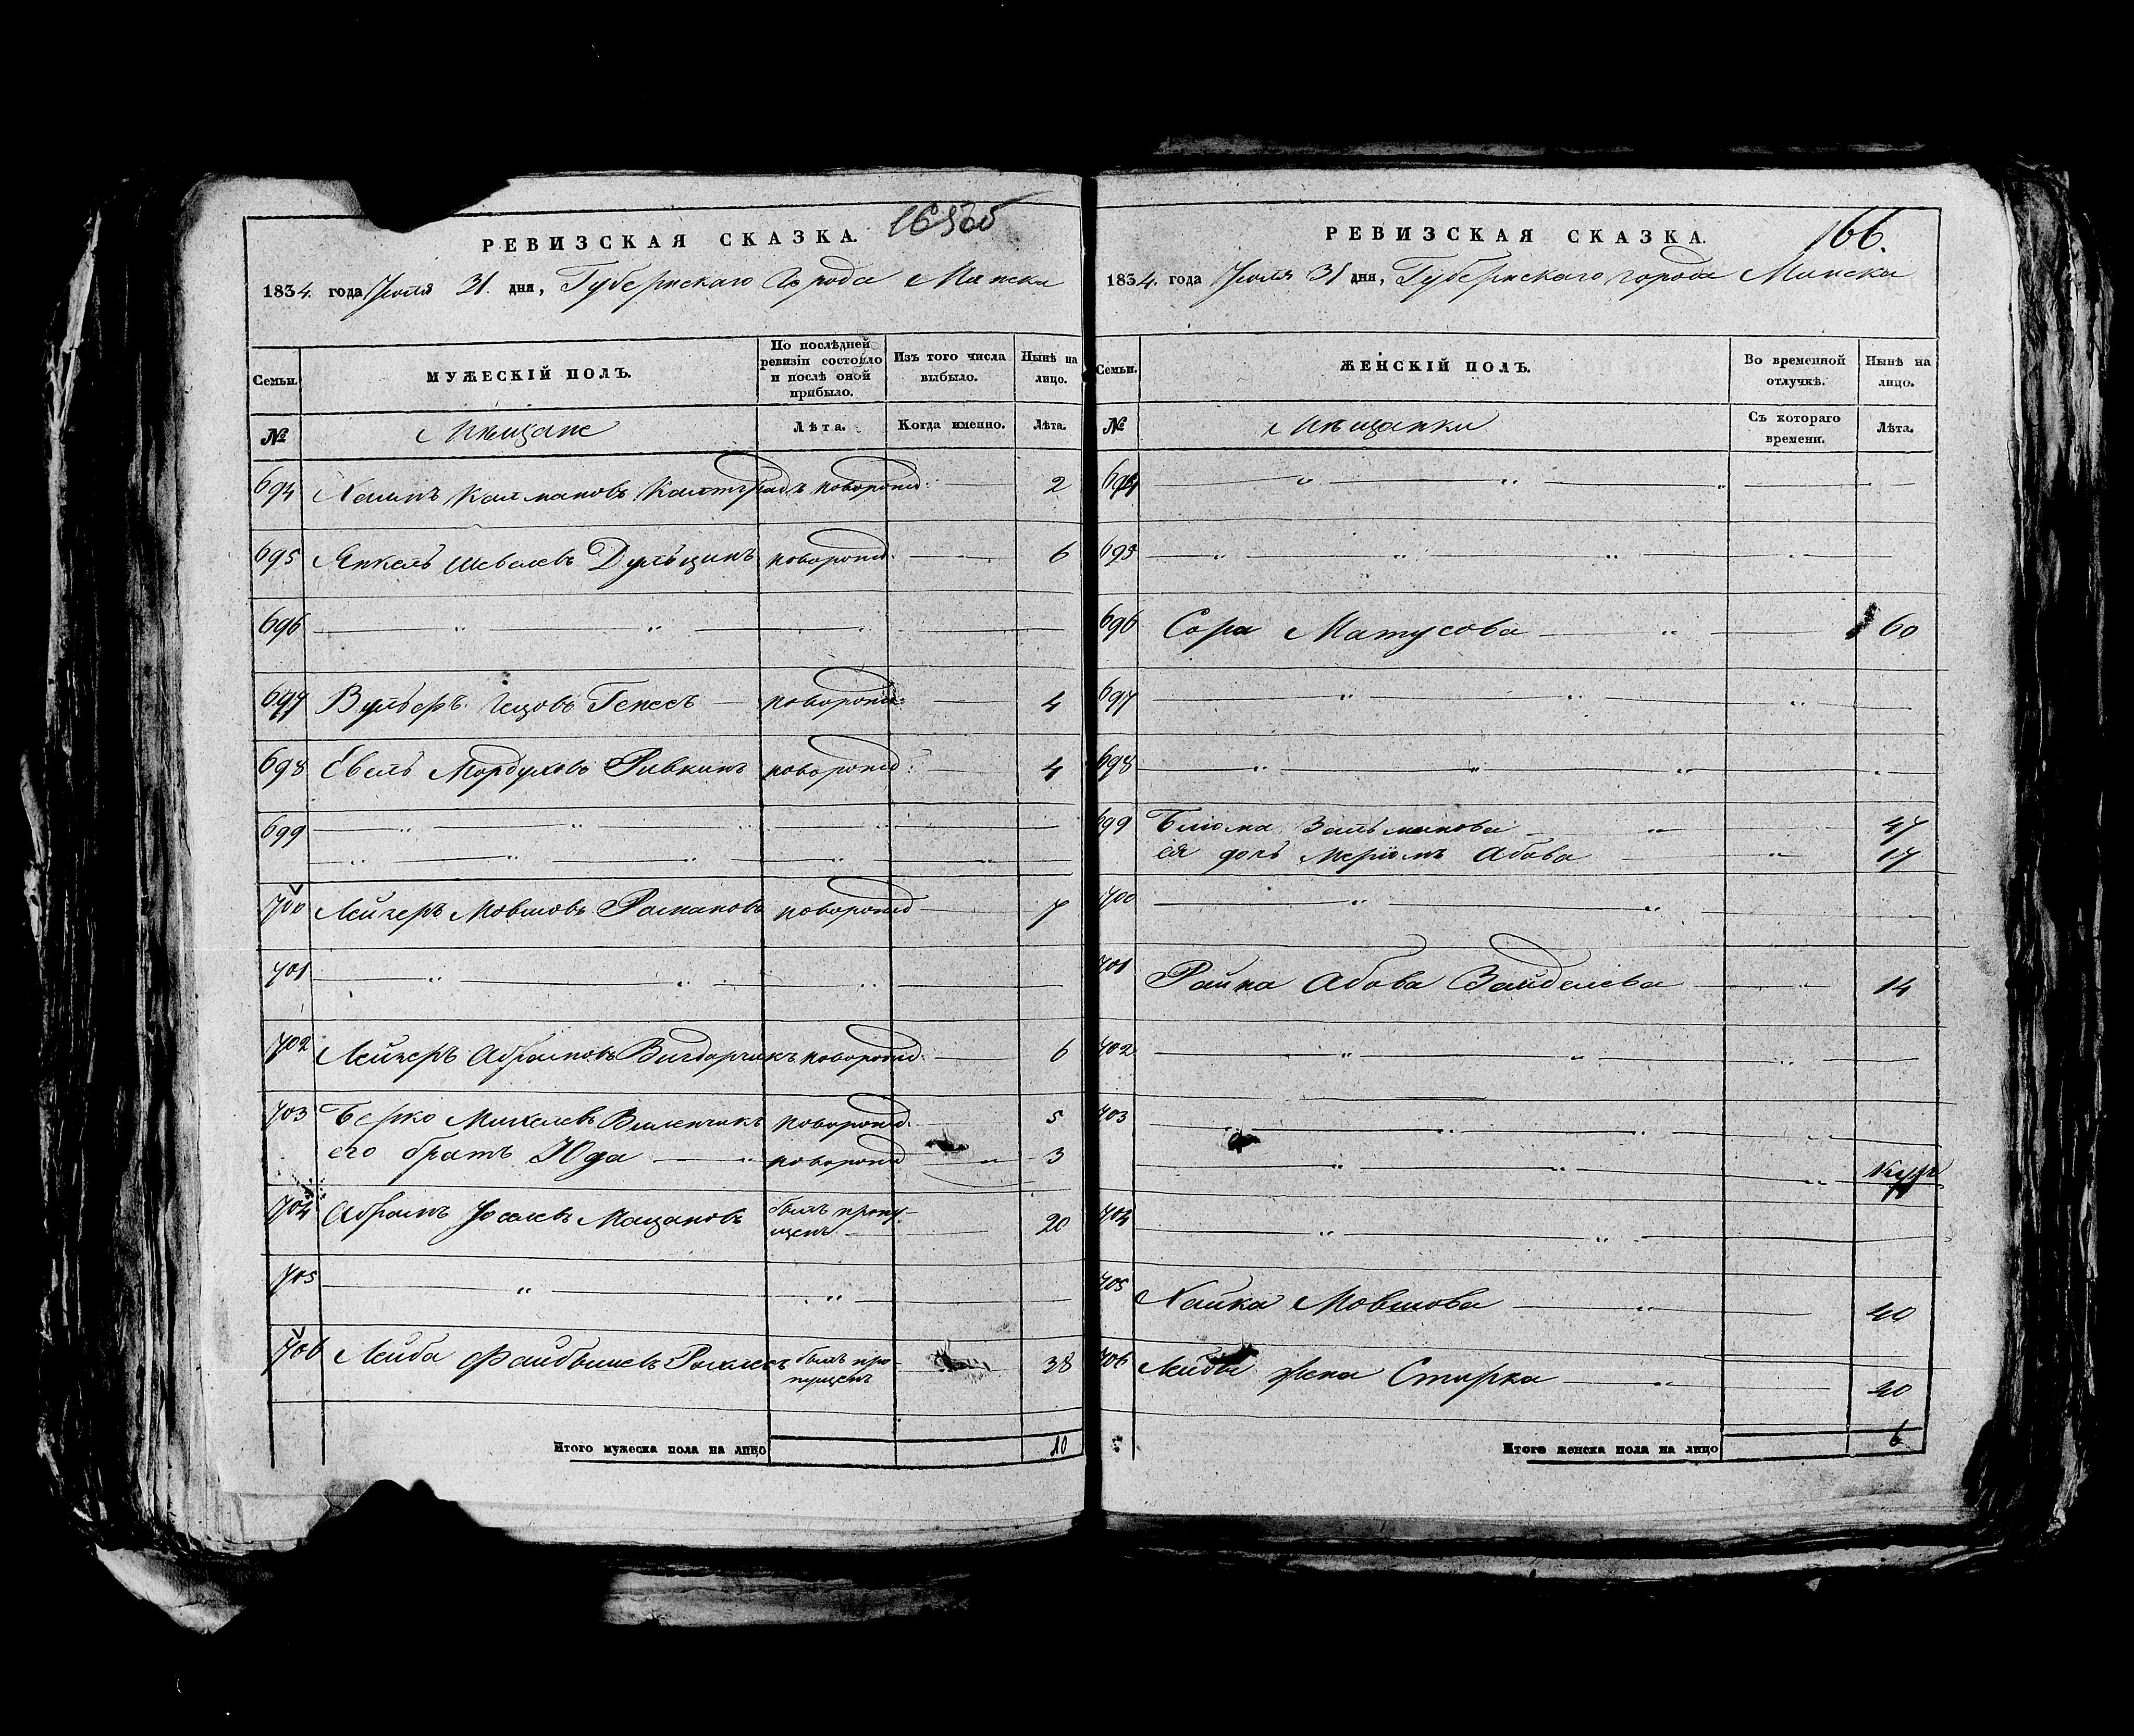 РЕВИЗСКАЯ СКАЗКА.
1834. года Іюля 31. дня, Губернскаго Города Минска
Семьи.
МУЖЕСКІЙ ПОЛЪ.
По послѣдней ревизіи состояло и послѣ оной прибыло.
Изъ того числа выбыло.
Нынѣ на лицо.
№
Мѣщане
Лѣта.
Когда именно.
Лѣта.
694 Хаимъ Калмановъ новорожд: 2
695 Янкель Шевелевъ Дульцинъ новорожд. 6
696
697 Вульфъ Гецовъ Генесъ новорожд: 4
698 Евель Мордуховъ Ривкинъ новорожд: 4
699
700 Лейзеръ Мовшовъ новорожд 7
701
702 Лейзеръ Абрамовъ Вигдорчикъ новорожд: 6
703 Берко Михелевъ Виленчикъ новорожд. 5
его братъ Юда новорожд 3
704 Абрамъ Іоселевъ Мацановъ былъ пропу-
щенъ 20
705
706 Лейба Файбишевъ былъ про-
пущенъ 38
Итого мужеска пола на лицо 10
РЕВИЗСКАЯ СКАЗКА.
166.
1834. года Іюля 31 дня, Губернскаго города Минска
Семьи.
ЖЕНСКІЙ ПОЛЪ.
Во временной отлучкѣ.
Нынѣ на лицо.
№
Мѣщанки
Съ котораго времени.
Лѣта.
694
695
696 Сора Матусова 60
697
698
699 Блюма Зальманова 47
ея дочь Меріомъ Абова 17
700
701 Райна Абова Вайделева 14
702
703
704
705 Хайка Мовшова 40
706 Лейбы жена Стирка 40
Итого женска пола на лицо 6